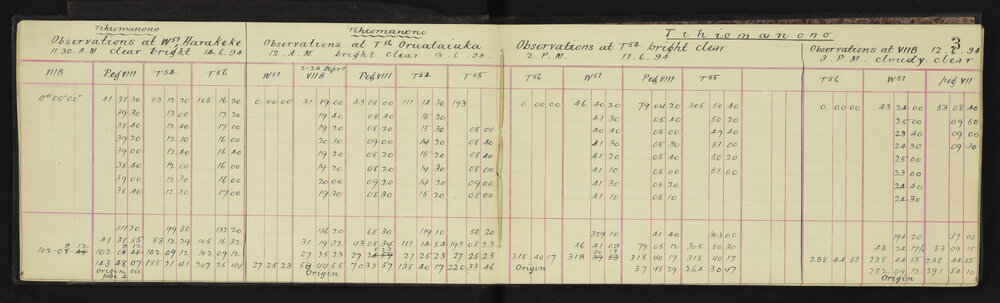 Tihiomanono
Observations at W51, Harakeke
11.30. A.M clear bright 14.6.94
VIIB Peg VIII T54 T56
0°00'00" 41 38 30 83 12 20 105 16 20
39 30 13 00 17 20
38 40 12 40 17 00
39 20 12 10 16 00
39 00 12 30 16 40
38 40 12 00 16 00
39 00 12 30 16 00
38 40 12 30 17 00
311 20 99 50 132 20
41 38 55 83 12 29 105 16 32
102 09 12 102 09 12 102 09 12
143 48 07 185 21 41 207 25 44
Origin see
page 2
Tihiomanono
Observations at T56 Oruataiaka
12. A.M. bright clear 13.6.94
W51 VIIB Peg VIII T54 T55
0 00 00 31 19 00 43 08 00 111 14 30 193
19 40 08 40 15 20
19 20 08 20 15 30 08 00
20 10 09 00 14 20 08 40
19 20 08 20 15 20 08 40
19 20 08 20 14 30 08 00
20 00 09 20 14 20 09 00
19 30 08 30 15 20 08 00
156 20 68 30 119 10 50 20
31 19 32 43 08 34 111 14 54 193 08 23
27 25 23 27 25 23 27 25 23
27 25 23 70 33 57 138 40 17 220 33 46
Origin
Tihiomanono
Observations at T54 bright clear
2. P.M. 11.6.94
T56 W51 Peg VIII T55
0 00 00 46 40 20 79 04 20 305 50 40
41 30 05 40 50 20
40 40 05 00 49 40
41 30 05 30 51 00
41 20 05 40 50 20
41 10 05 00 51 00
41 30 05 20
41 10 05 10
329 10 41 40 303 00
46 41 09 79 05 12 305 50 30
318 40 17 318 40 17 318 40 17
Origin 37 45 29 264 30 47
3
Observations at VIIB 12.6.94
3. P.M. cloudy clear
T56 W51 peg VII
0 00 00 43 24 00 53 08 40
25 00 09 50
23 40 09 00
24 30 09 30
25 00
23 00
24 40
24 30
194 20 37 00
43 24 17½ 53 09 15
238 44 55 238 44 55 238 44 55
282 09 12 291 54 10
Origin